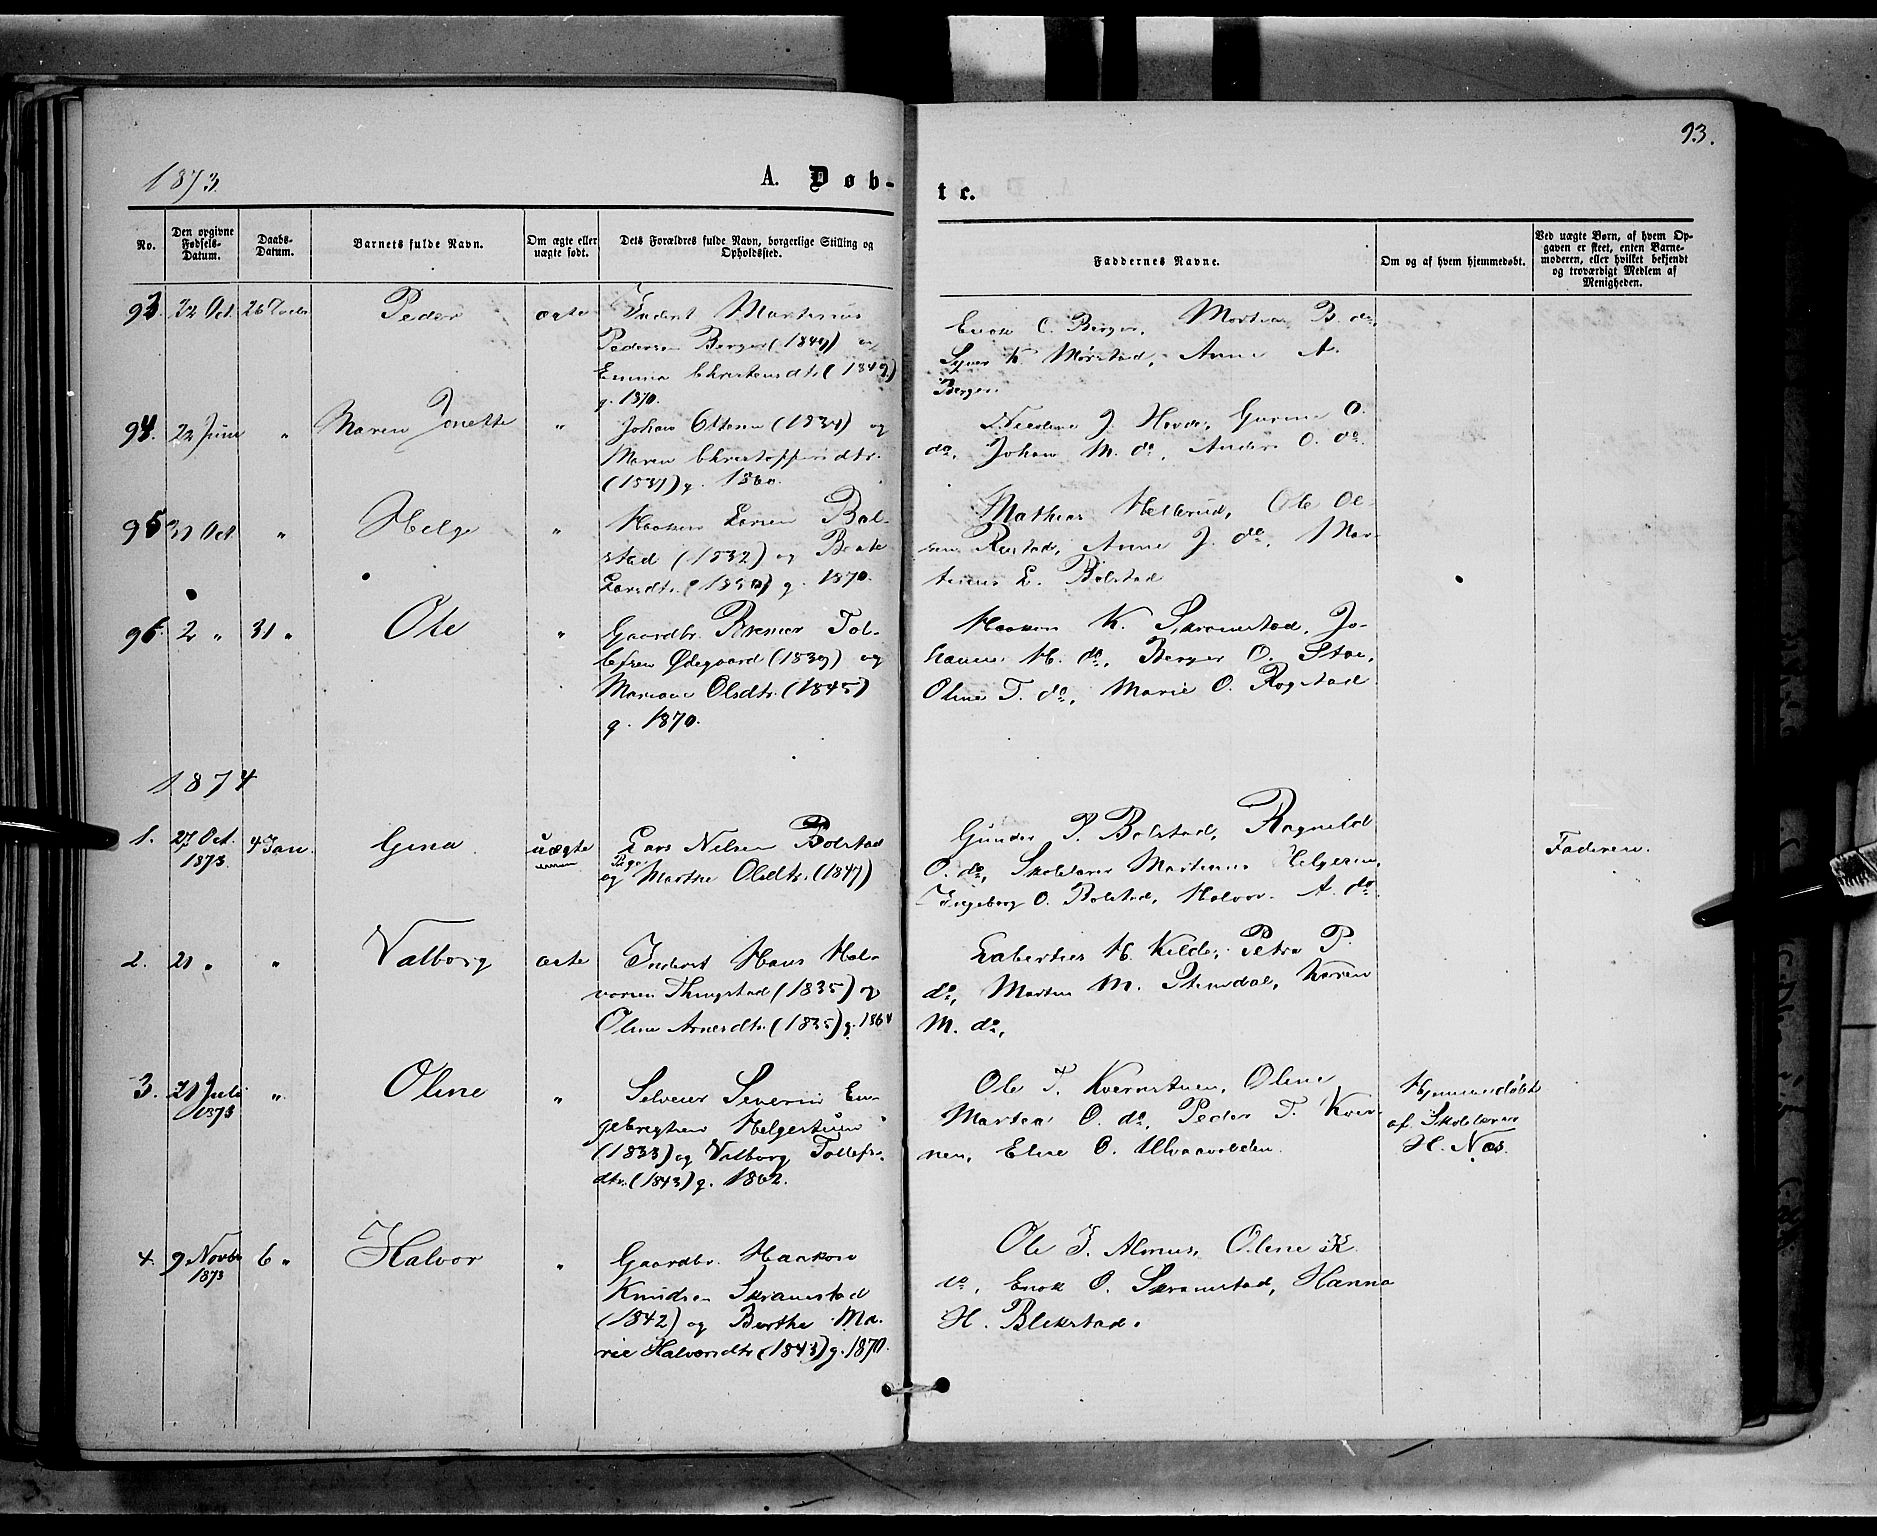 93.
1873.
A. Døb-
te.
No.
Den opgivne Fødsels-Datum.
Daabs-Datum.
Barnets fulde Navn.
Om ægte eller uægte født.
Dets Forældres fulde Navn, borgerlige Stilling og Opholdssted.
Faddernes Navne.
Om og af hvem hjemmedøbt.
Ved uægte Børn, af hvem Opgaven er skeet, enten Barnemoderen, eller hvilket bekjendt og troværdigt Medlem af Menigheden.
93. Oct. 26 Peder ægte Inderst Martinus
Pedersen Berger (1849) og
Emma Christensdtr (1849)
g. 1870.
Enok C. Berger, B. do,
K Mørstad, Anne A.
Berger.
94. 22 Juni " Maren Jonette " Johan Ottesen (1834) og
Maren Christoffersdtr.
g. 1860.
J. Hovde, O.
do, Johan M. do, Anders O. do.
95. Oct " Helge " Haakon Larsen Bol-
stad (1832) og Beate
Larsdtr. (1850) g. 1870.
Mathias Hellerud, Ole Ol-
sen Rustad, Anne J. do, Mar-
tinus L. Bolstad
96. 2 " 31 " Ole " Gaardbr. Tol-
lefsen Ødegaard (1839) og
Mariane Olsdtr. (1845)
g. 1870.
Haakon K. Skramstad, Jo-
hanne H. do, Berger O. Stoe,
Oline T. do, Marie O. Rogstad.
1874
1. 27 Oct. 1873. 4 Jan. Gina uægte Lars Nilsen Bolstad
og Pige Marthe Olsdtr. (1847)
Gunder P. Bolstad, Ragnild
O. do, Skolelærer Martinus Helgesen,
Ingeborg O. Bolstad, Halvor A. do.
Faderen.
2. 21 " " Valborg ægte Inderst Hans Hal-
vorsen Thingstad (1835) og
Oline Arnesdtr. (1835) g. 1864
H. Kilde, Petra P.
do, Martin M. Stensdal, Karen
M. do,
3. 21 Juli 1873 " Oline " Selveier Severin En-
gebregtsen Helgestuen
(1833) og Valborg Tollefs-
dtr. (1843) g. 1862.
Ole T. Kvernstuen, Oline
Martea O. do, Peder T. Kver-
nen, Eline O. Ulvaavolden.
Hjemmedøbt
af Skolelærer
H. Næs.
4. 9 Novbr 1873 6 " Halvor " Gaardbr. Haakon
Knudsen Skramstad
(1842) og Berthe Ma-
rie Halvorsdtr (1843) g. 1870.
Ole J. Almus, Oline K.
do, Enok O. Skramstad, Hanna
H. Blikstad.